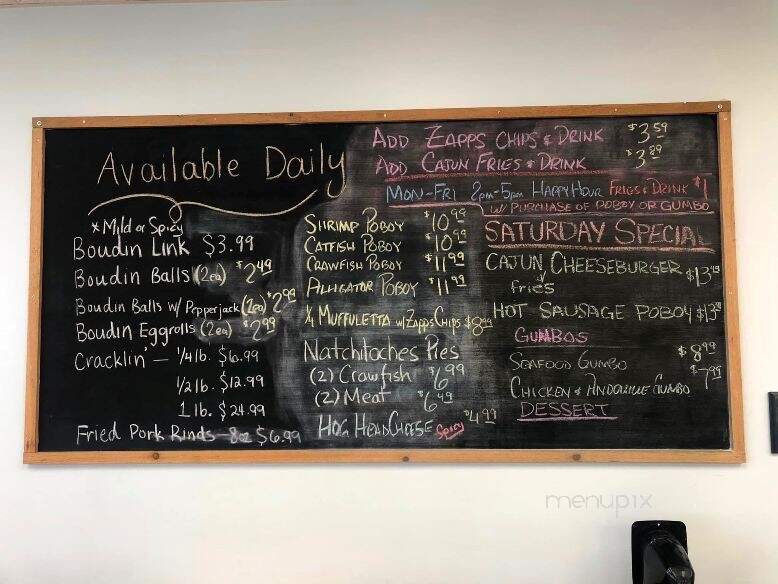 Available Daily
* Mild or Spicy
Boudin Link $3.99
Boudin Balls (2ea) $2.49
Boudin Balls w/ Pepperjack (2ea) $2.99
Boudin Eggrolls (2ea) $2.99
Cracklin' — 1/4 lb. $6.99
1/2 lb. $12.99
1 lb. $24.99
Fried Pork Rinds 8oz $6.99
ADD ZAPPS CHIPS & DRINK $3.59
ADD CAJUN FRIES & DRINK $3.89
MON-FRI 2pm-5pm HAPPY HOUR FRIES & DRINK $1
W/ PURCHASE OF POBOY OR GUMBO
SHRIMP POBOY $10.99
CATFISH POBOY $10.99
CRAWFISH POBOY $11.99
ALLIGATOR POBOY $11.99
1/4 MUFFULETTA w/ Zapps Chips $8.99
Natchitoches Pies
(2) Crawfish $6.99
(2) Meat $6.49
HOG HEADCHEESE Spicy $4.99
SATURDAY SPECIAL
CAJUN CHEESEBURGER $13
fries
HOT SAUSAGE POBOY $13
GUMBOS
SEAFOOD GUMBO $8.99
CHICKEN & ANDOUILLE GUMBO $7.99
DESSERT
menupix